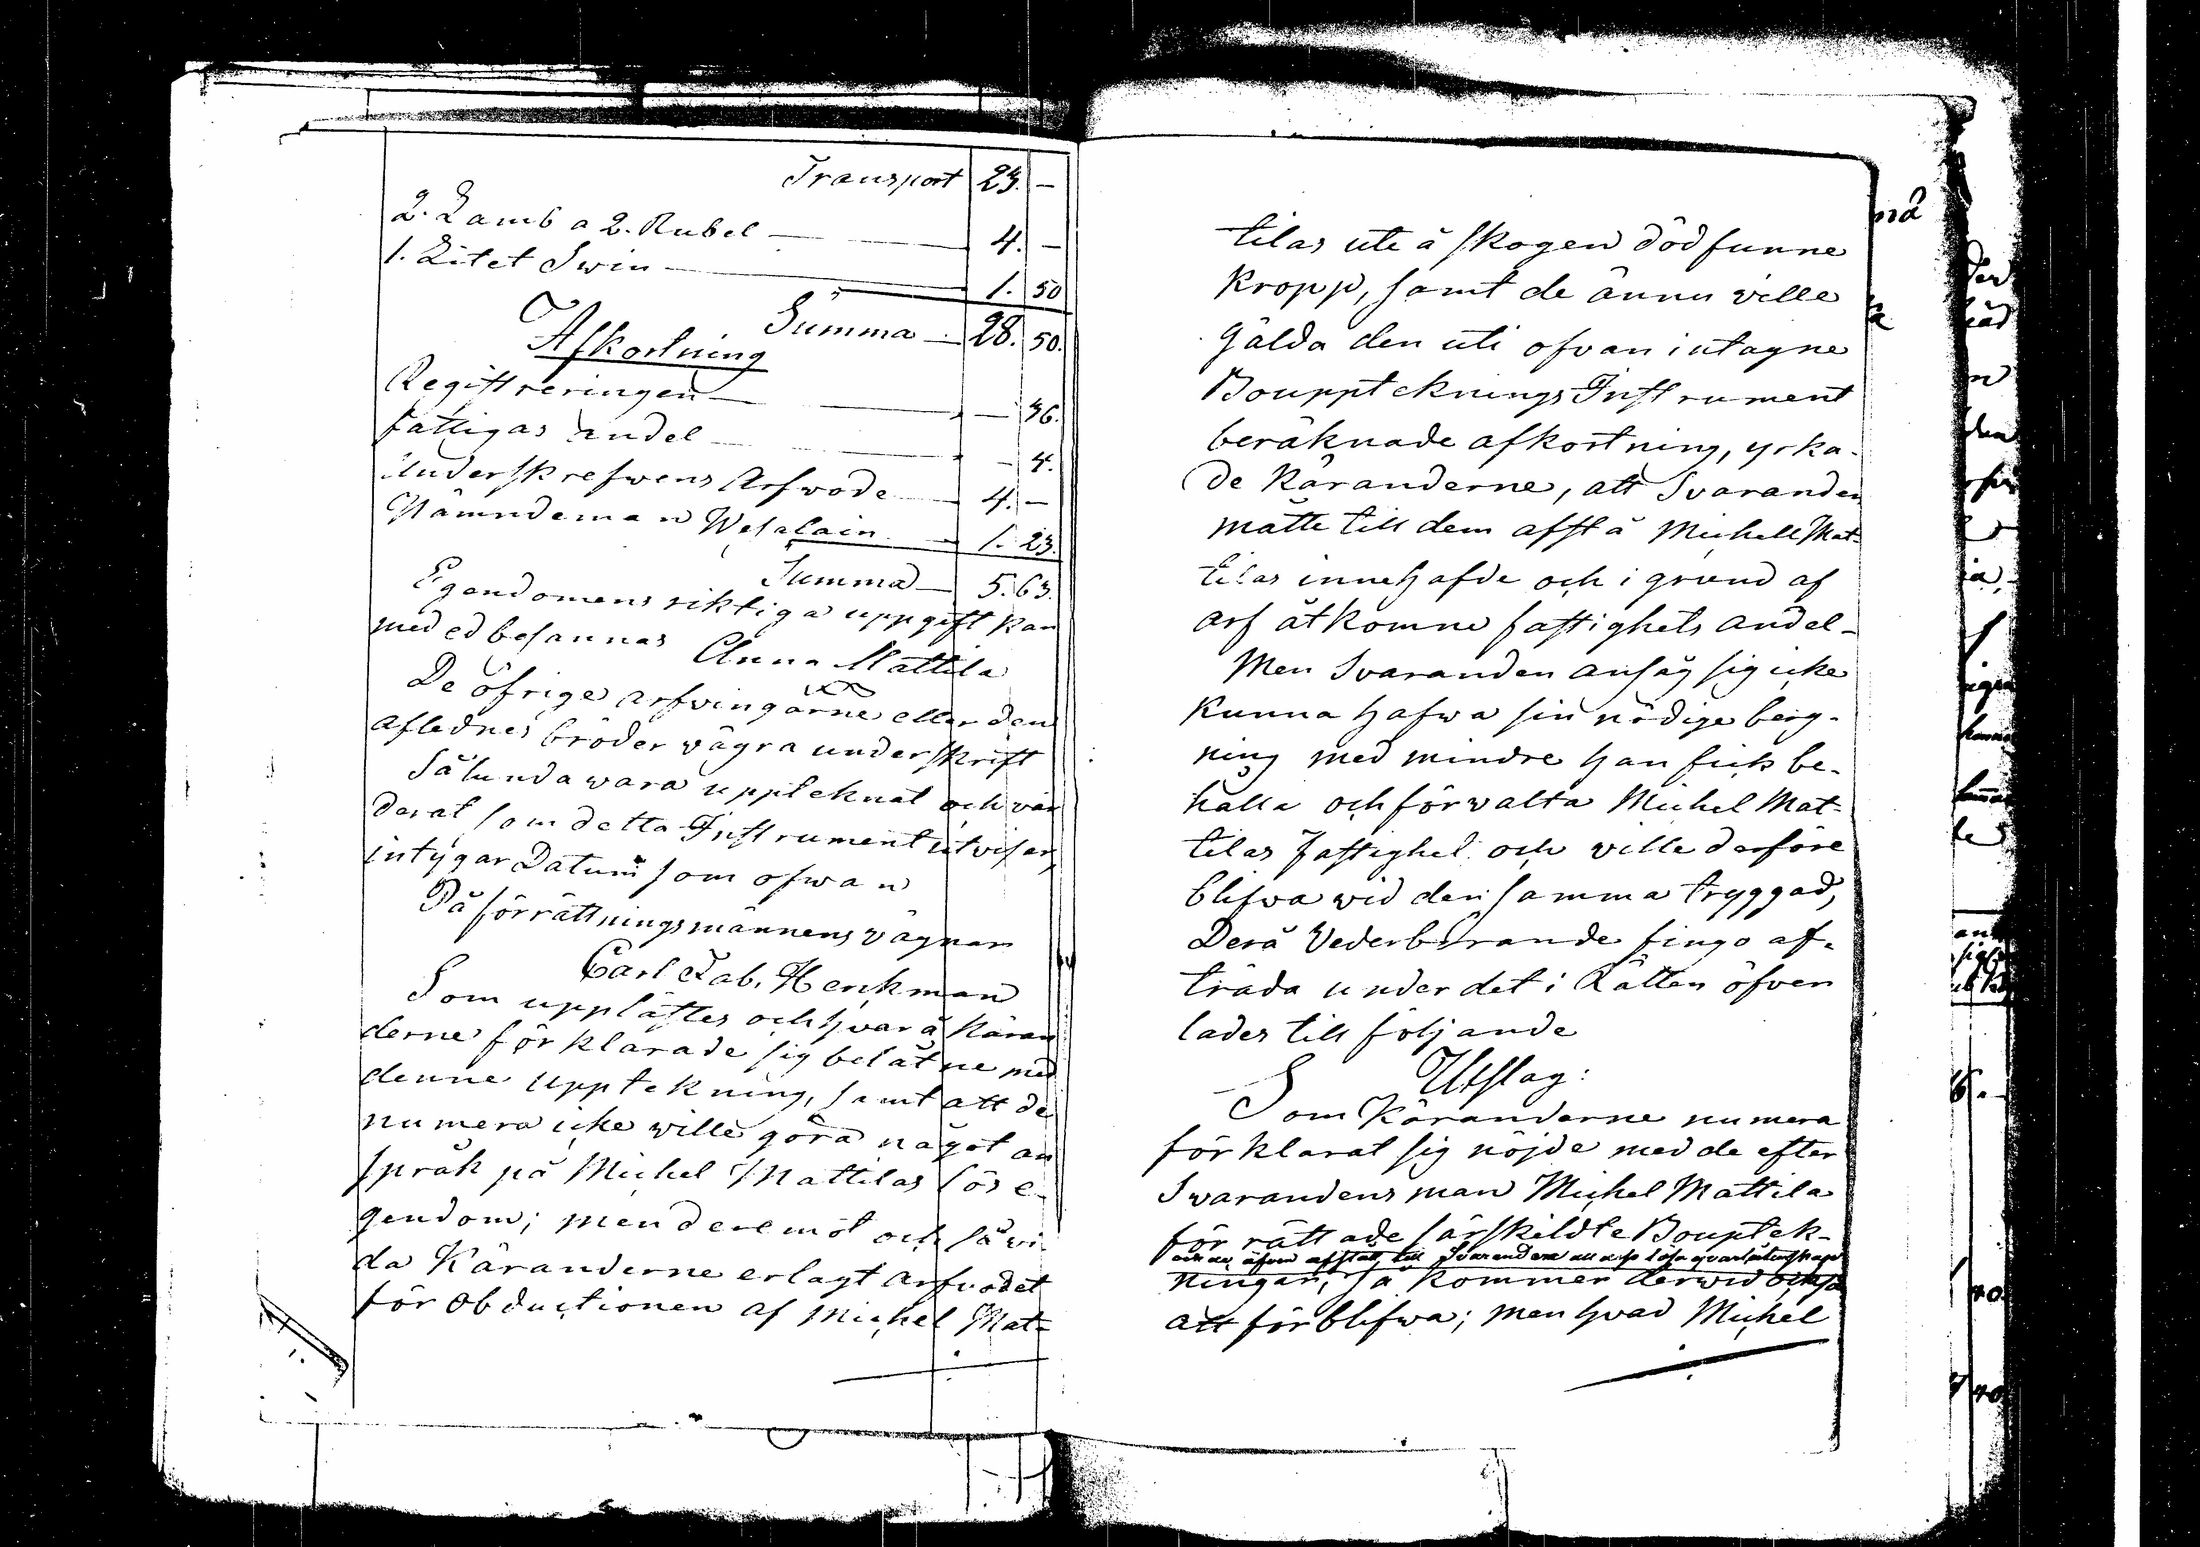 Transport 23. —
2. Lamb a 2. Rubel — 4. —
1. Litet Swin — 1. 50
Summa — 28. 50.
Afkortning
Registreringen — — 36.
fattigas andel — — 4.
Underskrefwens Arfwode — 4. —
Nämndeman Wesalain — 1. 23.
Summa — 5. 63.
Egendomens riktiga uppgift kan
med ed besannas Anna Mattila
De öfrige arfvingarne eller den
aflednes bröder vägra underskrift
Sålunda wara upptecknat och vär
derat som detta Instrument utvisar,
intygar Datum som ofwan
På förrättningsmännens vägnar
Carl Fab. Henkman
Som upplästes och hvarå Käran
derne förklarade sig belåtne med
denne uppteckning, samt att de
numera icke wille göra något an
språk på Michel Mattilas lös e-
gendom; men deremot och såvi-
da Käranderne erlagt arfvodet
för Obductionen af Michel Mat-
tilas ute å skogen död funne
Kropp, samt de ännu ville
gälda den uti ofvan intagne
Bouppteknings Instrument
beräknade afkortning, yrka-
de Käranderne, att Svaranden
måtte till dem afstå Michell Mat-
tilas innehafde och i grund af
arf åtkomne fastighets andel-
Men Svaranden ansåg sig icke
Kunna hafwa sin nödige berg-
ning med mindre han fick be-
hålla och förvalta Michel Mat-
tilas fastighet och ville derföre
blifva wid den samma tryggad,
Derå Vederbörande fingo af-
träda under det i Rätten öfver
lades till följande
Utslag:
Som Käranderne numera
förklarat sig nöjde med de efter
Svarandens man Michel Mattila
för rättade särskildte Bouptek-
och nu äfven afstått till Svaranden all lösa qvarlåtenskapen
ningar, så kommer derwid också
att förblifwa; men hvad Michel